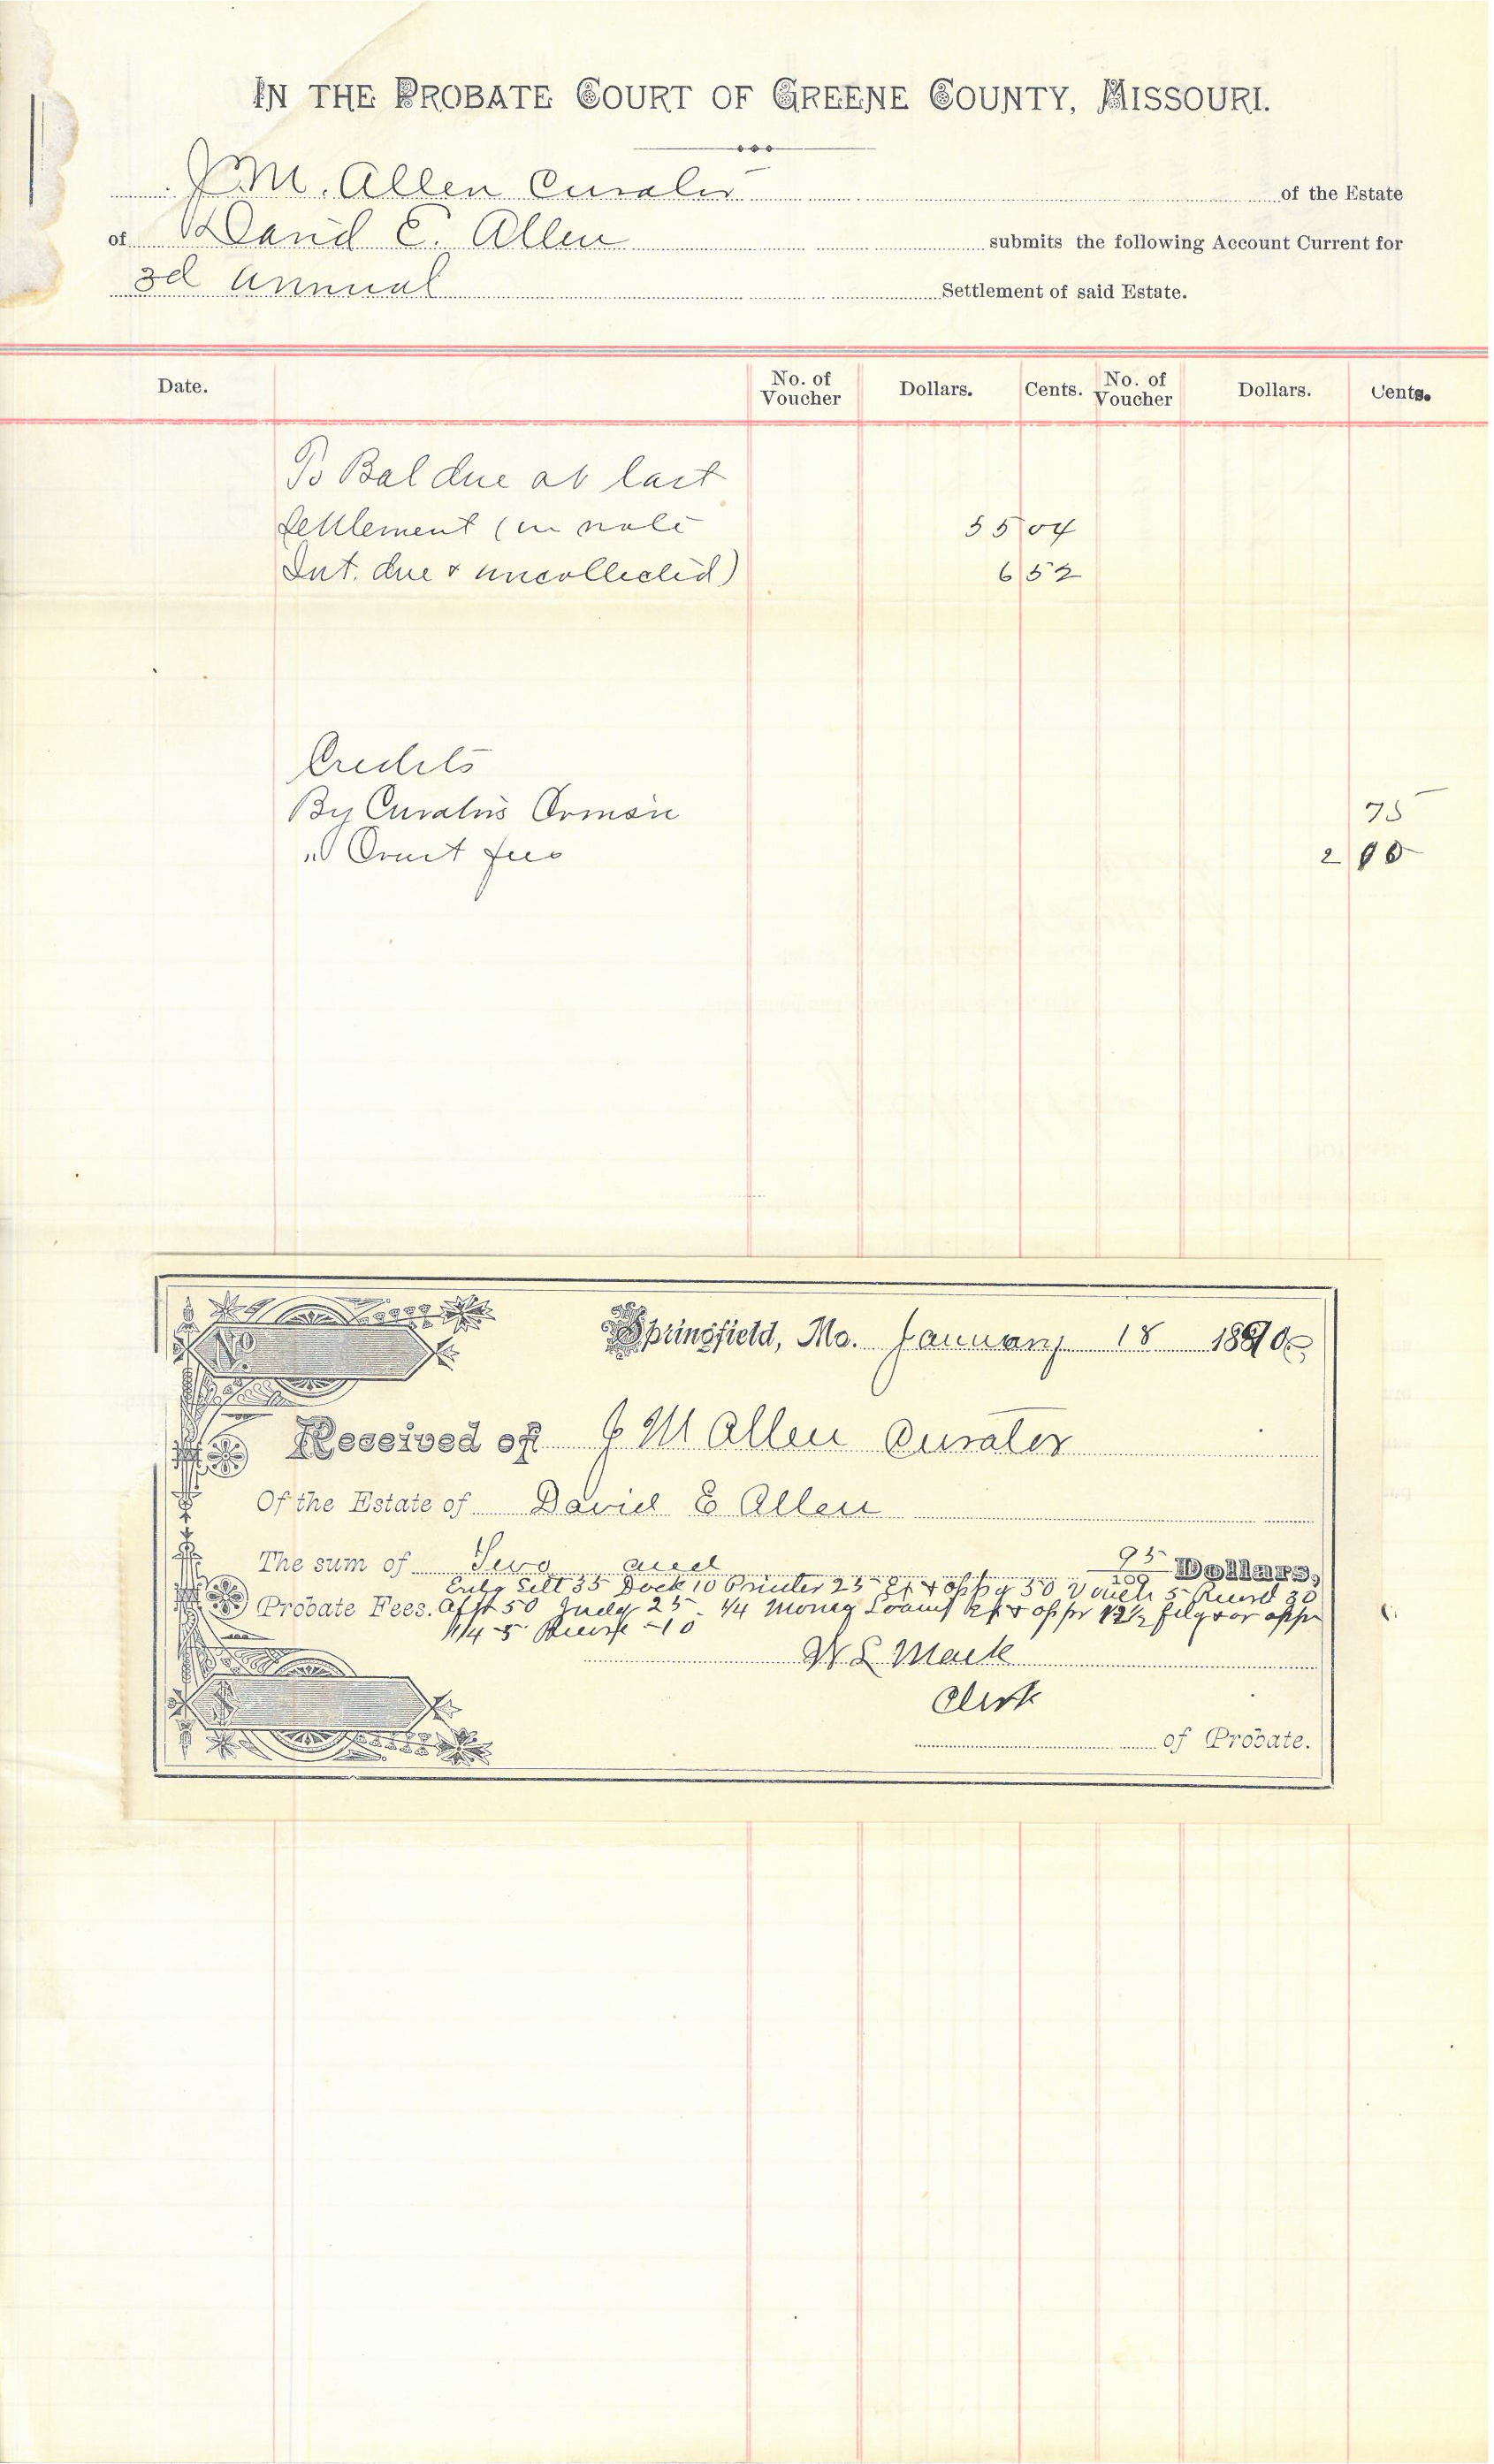 IN THE PROBATE COURT OF GREENE COUNTY, MISSOURI.
J. M. Allen Curator of the Estate
of David E. Allen submits the following Account Current for
3d annual Settlement of said Estate.
Date. No. of Voucher Dollars. Cents. No. of Voucher Dollars. Cents.
To Bal due at last
Settlement (in note 55 04
Int. due & uncollected) 6 52
Credits
By Curators Comsn 75
" Court fees 2
Springfield, Mo. January 18 1890
Received of J M Allen Curator
Of the Estate of David E Allen
The sum of Two and 95/100 Dollars,
Sett 35 Dock 10 Printer 25 & 50 Vouch 5 Record 30
Probate Fees. Afft 50 25 1/4 Money Loand & 12½ filg & or
1/4 5 10
W L Mack
Clerk
of Probate.